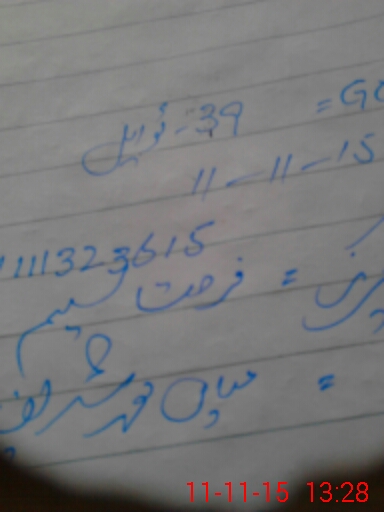 39 = GC
11-11-15
1111323615
= فرحت نسیم
= میاں محمد شریف
11-11-15 13:28